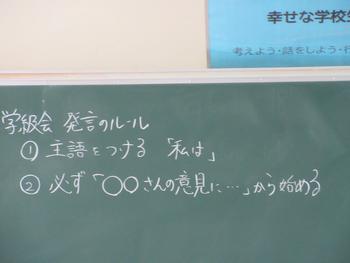 幸せな学校
考えよう・話をしよう・行
学級会 発言のルール
① 主語をつける 「私は」
② 必ず「〇〇さんの意見に…」から始める